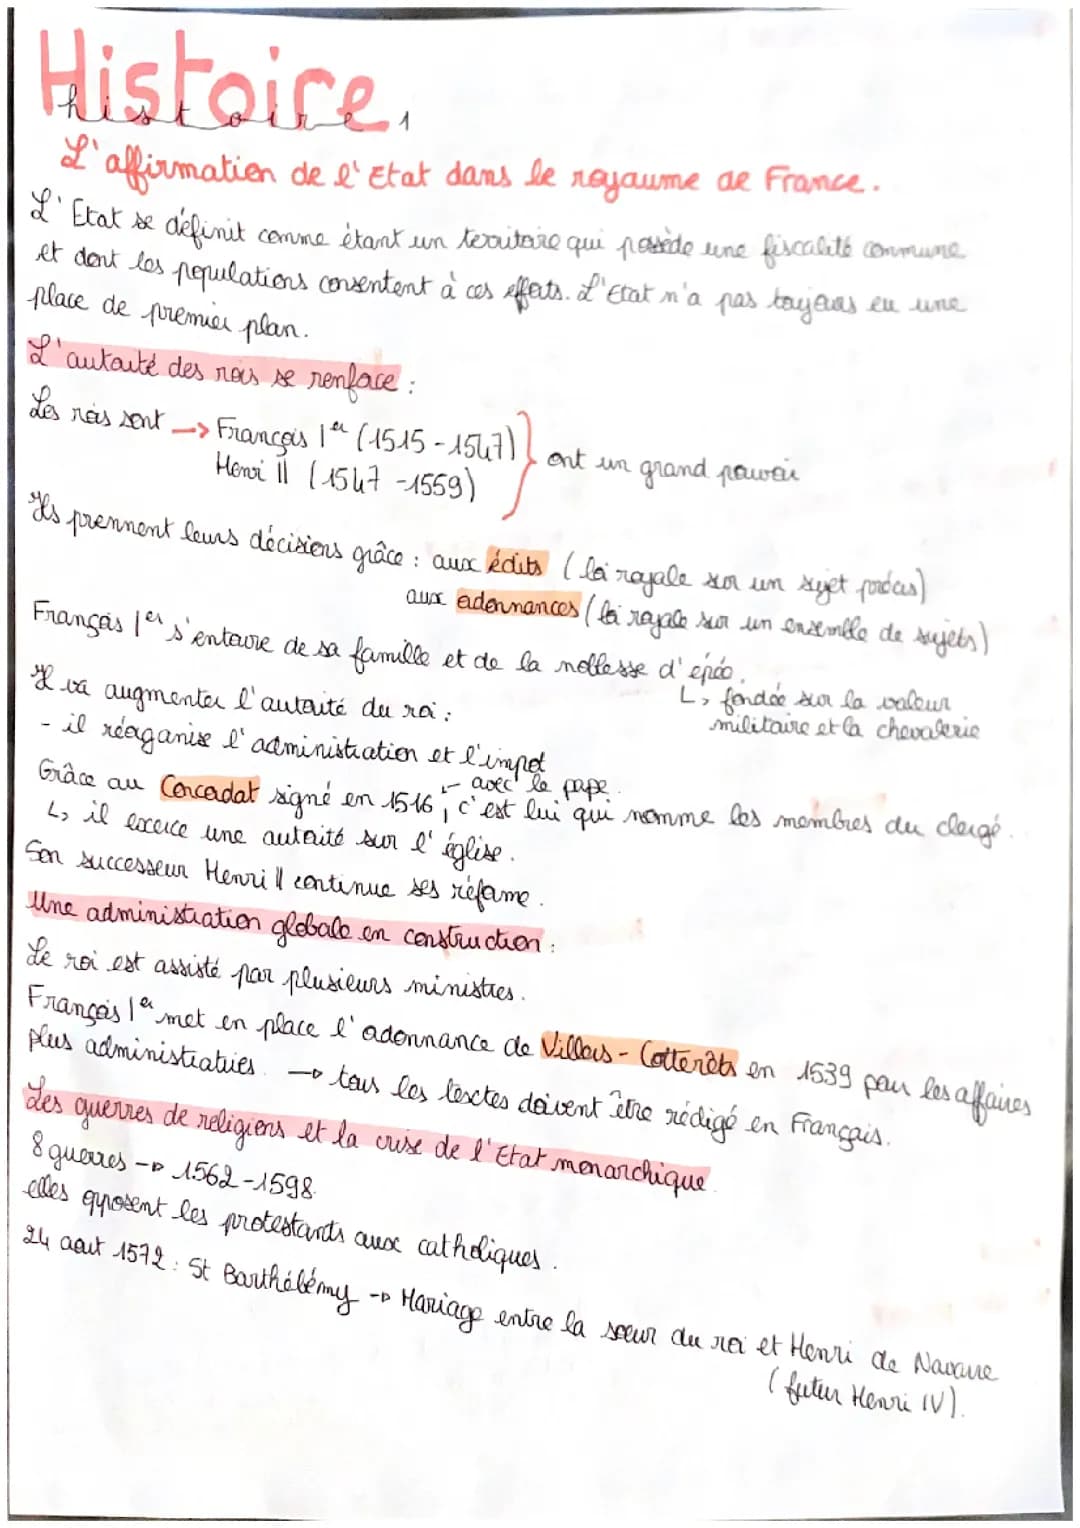 Histoire
histoire 1
L'affirmation de l'Etat dans le royaume de France.
L'Etat se définit comme étant un territoire qui possède une fiscalité commune
et dont les populations consentent à ces efforts. L'Etat n'a pas toujours eu une
place de premier plan.
L'autorité des rois se renforce :
Les rois sont → François Ier (1515-1547) } ont un grand pouvoir
Henri II (1547-1559)
Ils prennent leurs décisions grâce : aux édits (loi royale sur un sujet précis)
aux ordonnances (loi royale sur un ensemble de sujets)
François Ier s'entoure de sa famille et de la noblesse d'épée.
↳ fondée sur la valeur
militaire et la chevalerie
Il va augmenter l'autorité du roi :
- il réorganise l'administration et l'impot
← avec le pape.
Grâce au Concordat signé en 1516, c'est lui qui nomme les membres du clergé.
↳ il exerce une autorité sur l'église.
Son successeur Henri II continue ses réforme.
Une administration globale en construction :
Le roi est assisté par plusieurs ministres.
François Ier met en place l'ordonnance de Villers-Cotterêts en 1539 pour les affaires
plus administratives. → tous les textes doivent être rédigé en Français.
Les guerres de religions et la crise de l'Etat monarchique.
8 guerres → 1562-1598.
elles opposent les protestants aux catholiques.
24 aout 1572 : St Barthélémy → Mariage entre la soeur du roi et Henri de Navarre
(futur Henri IV).